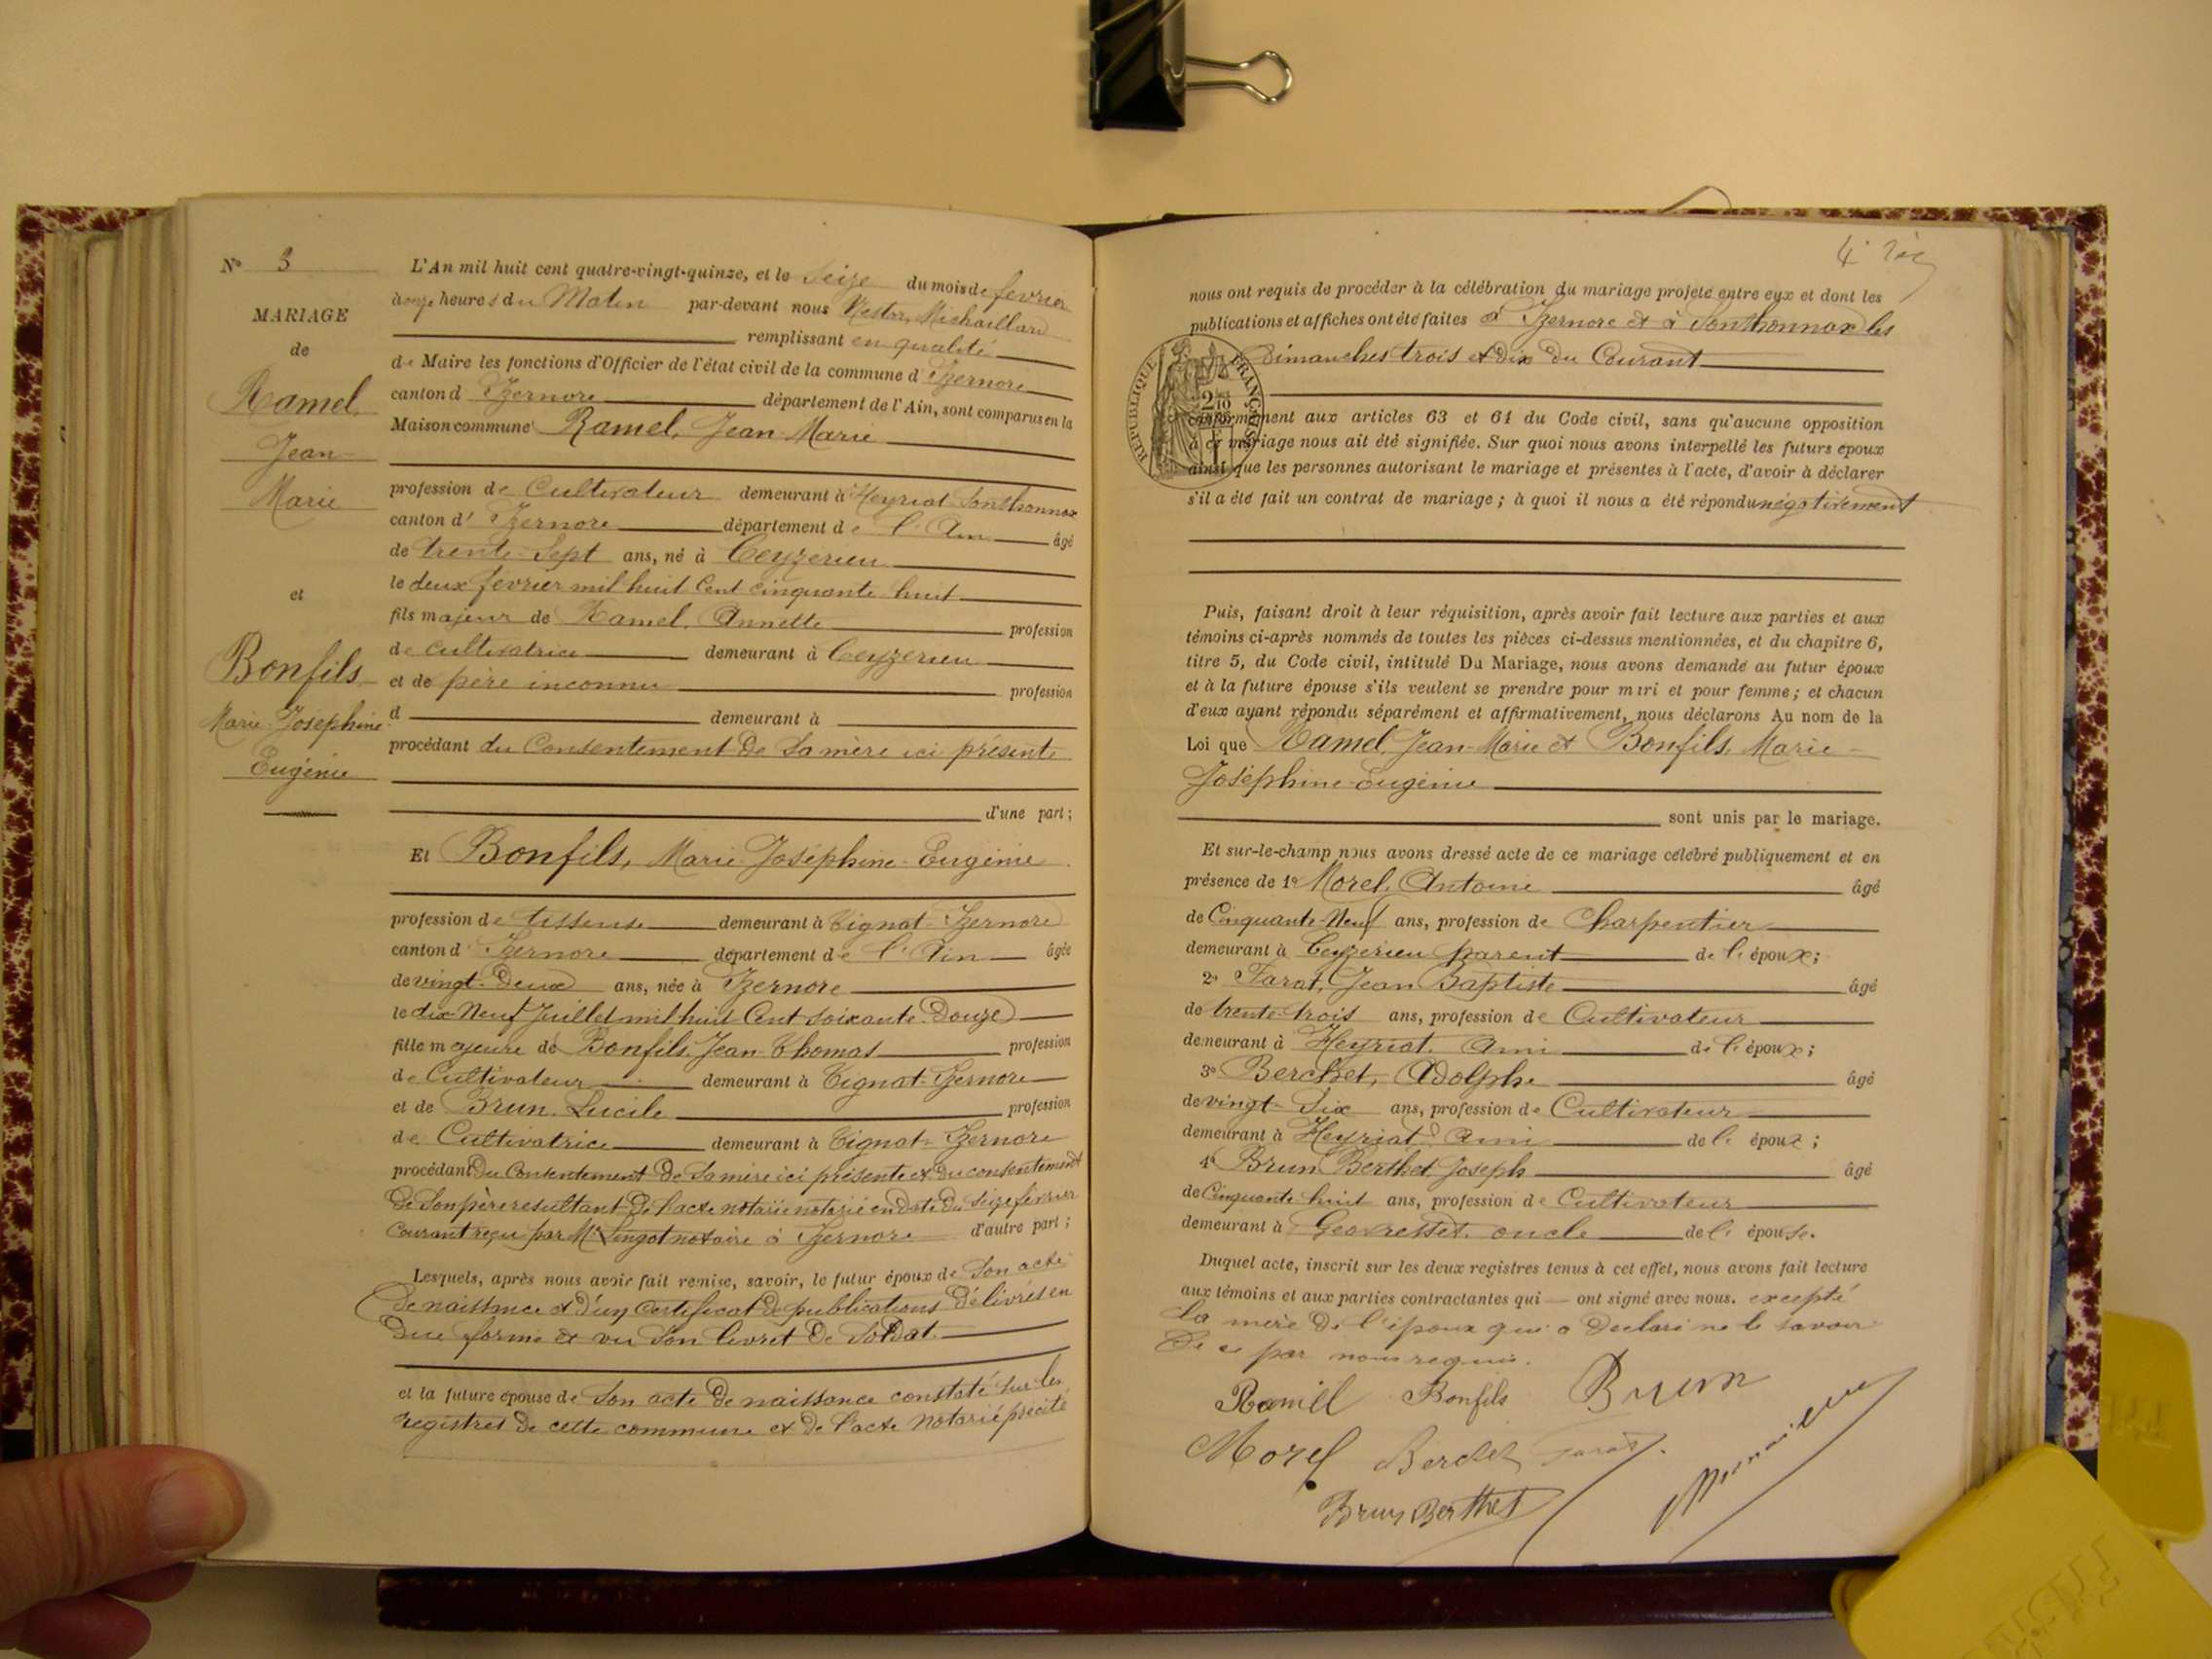 N° 3
MARIAGE
de
Ramel
Jean-
Marie
et
Bonfils
Marie-Joséphine
Eugénie
L'An mil huit cent quatre-vingt-quinze, et le Seize du mois de fevrier
à onze heures du Matin par-devant nous Nestor, Michaillard
remplissant en qualité
de Maire les fonctions d'Officier de l'état civil de la commune d'Izernore
canton d'Izernore département de l'Ain, sont comparus en la
Maison commune Ramel, Jean-Marie
profession de Cultivateur demeurant à Heyriat-Sonthonnax
canton d'Izernore département de l'Ain âgé
de trente-Sept ans, né à Ceyzerieu
le deux fevrier mil huit Cent cinquante huit
fils majeur de Ramel, Annette profession
de cultivatrice demeurant à Ceyzerieu
et de père inconnu profession
d demeurant à
procédant du Consentement De Sa mère ici présente
d'une part;
Et Bonfils, Marie Joséphine-Eugénie
profession de tisseuse demeurant à Tignat-Izernore
canton d'Izernore département de l'Ain âgée
de vingt-Deux ans, née à Izernore
le dix-Neuf Juillet mil huit Cent soixante-Douze
fille majeure de Bonfils, Jean-Thomas profession
de Cultivateur demeurant à Tignat-Izernore
et de Brun, Lucile profession
de Cultivatrice demeurant à Tignat-Izernore
procédant Du Consentement De Sa mère ici présente et Du consentement
De Son père resultant De l'acte notarié notarié en Date Du Seize fevrier
Courant reçu par Me Lingot notaire à Izernore d'autre part;
Lesquels, après nous avoir fait remise, savoir, le futur époux de Son acte
De naissance et D'un Certificat De publications Délivrés en
Due forme et vu Son livret De Soldat
et la future épouse de Son acte De naissance constaté sur les
registres De cette commune et De l'acte Notarié précité
nous ont requis de procéder à la célébration du mariage projeté entre eux et dont les
publications et affiches ont été faites à Izernore et à Sonthonnax les
Dimanches trois et Dix Du Courant
RÉPUBLIQUE FRANÇAISE
conformément aux articles 63 et 64 du Code civil, sans qu'aucune opposition
à ce mariage nous ait été signifiée. Sur quoi nous avons interpellé les futurs époux
ainsi que les personnes autorisant le mariage et présentes à l'acte, d'avoir à déclarer
s'il a été fait un contrat de mariage; à quoi il nous a été répondu négativement
Puis, faisant droit à leur réquisition, après avoir fait lecture aux parties et aux
témoins ci-après nommés de toutes les pièces ci-dessus mentionnées, et du chapitre 6,
titre 5, du Code civil, intitulé Du Mariage, nous avons demandé au futur époux
et à la future épouse s'ils veulent se prendre pour mari et pour femme; et chacun
d'eux ayant répondu séparément et affirmativement, nous déclarons Au nom de la
Loi que Ramel, Jean-Marie et Bonfils, Marie-
Joséphine-Eugénie
sont unis par le mariage.
Et sur-le-champ nous avons dressé acte de ce mariage célébré publiquement et en
présence de 1° Morel, Antoine âgé
de Cinquante-Neuf ans, profession de Charpentier
demeurant à Ceyzerieu parent de l'époux;
2° Tarat, Jean Baptiste âgé
de trente-trois ans, profession de Cultivateur
demeurant à Heyriat, Ami de l'époux;
3° Berchet, Adolphe âgé
de vingt-Six ans, profession de Cultivateur
demeurant à Heyriat, Ami de l'époux;
4° Brun Berthet Joseph âgé
de Cinquante-huit ans, profession de Cultivateur
demeurant à Geovresset, oncle de l'épouse.
Duquel acte, inscrit sur les deux registres tenus à cet effet, nous avons fait lecture
aux témoins et aux parties contractantes qui ont signé avec nous. excepté
La mère De l'époux qui a Déclaré ne le savoir
De ce par nous requis.
Ramel Bonfils Brun
Morel Berchet Tarat
Brun Berthet